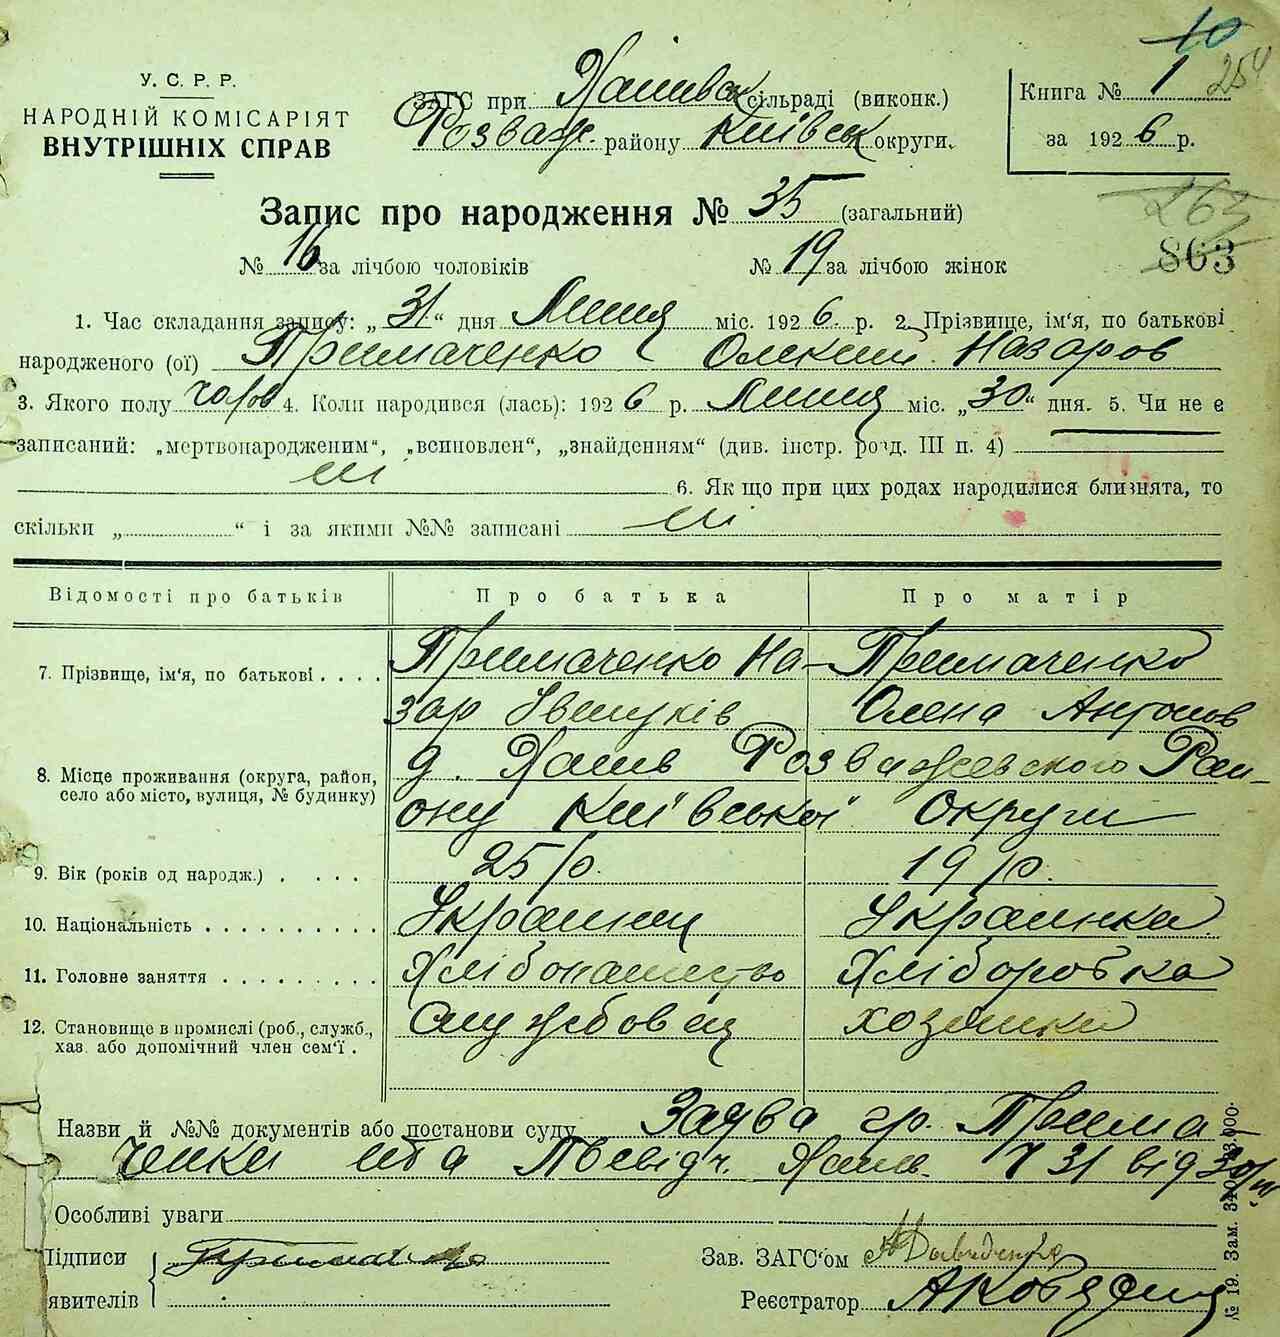 10
254
У. С. Р. Р.
НАРОДНІЙ КОМІСАРІЯТ
ВНУТРІШНІХ СПРАВ
ЗАГС при сільраді (виконк.)
Розваж. району Київськ округи.
Книга № 1
за 1926 р.
Запис про народження № 35 (загальний)
263
863
№ 16 за лічбою чоловіків № 19 за лічбою жінок
1. Час складання запису: „31“ дня Липня міс. 1926 р. 2. Прізвище, ім'я, по батькові
народженого (ої) Примаченко Олексій Назаров
3. Якого полу чолов 4. Коли народився (лась): 1926 р. Липня міс. „30“ дня. 5. Чи не є
записаний: „мертвонародженим“, „всиновлен“, „знайденням“ (див. інстр. розд. III п. 4)
ні 6. Як що при цих родах народилися близнята, то
скільки „ “ і за якими №№ записані ні
Відомості про батьків Про батька Про матір
7. Прізвище, ім'я, по батькові . . . . Примаченко На- Примаченко
зар Олена Антонов
8. Місце проживання (округа, район, Розважевского Рай-
село або місто, вулиця, № будинку) ону Київської Округи
9. Вік (років од народж.) . . . . 25 р. 19 р.
10. Національність . . . . . . . . . . Украинец Украинка
11. Головне заняття . . . . . . . . . Хлібопашество Хлiборобка
12. Становище в промислі (роб., служб., Службовец хозяйка
хаз. або допомічний член сем'ї .
Назви й №№ документів або постанови суду Заява гр. Прима
ченки та Посвідч. № 31 від 30/VII
Особливі уваги
Підписи
явителів
Зав. ЗАГС'ом Давиденко
Реєстратор
№ 19. Зам.